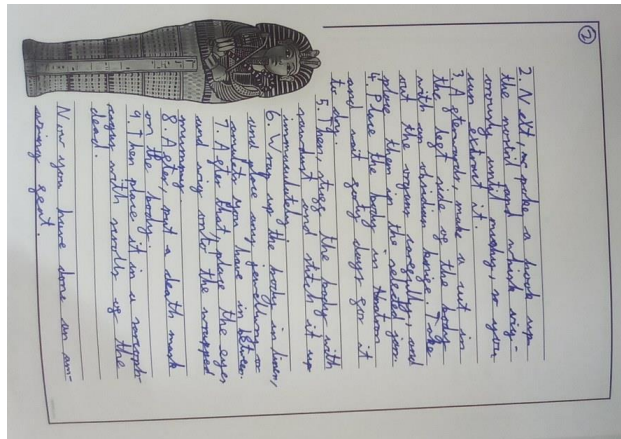 2
2. Next, poke a hook up
the nostril and whisk vig-
orously until mushy, so you
can extract it.
3. Afterwards, make a cut in
the left side of the body
with an obsidian knife. Take
out the organs carefully, and
place them in the related jar.
4. Place the body in Natron
and wait forty days for it
to dry.
5. Then, stuff the body with
sawdust and stitch it up
immaculately.
6. Wrap up the body in linen,
and place any jewellery or
amulets you have in
7. After that, place the eyes
and wig onto the wrapped
mummy.
8. After, put a death mask
on the body.
9. Then place it in a sarcoph-
agus with scrolls of the
dead.
Now you have done an am-
azing feat.